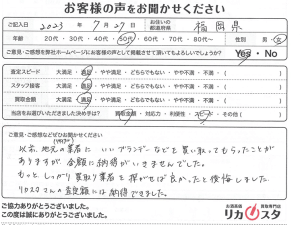 お客様の声をお聞かせください
ご記入日 2023年 7月 27日 お住いの都道府県 福岡県
年齢 20代・30代・40代・50代・60代・70代・80代〜 性別 男・女
ご意見・ご感想を弊社ホームページにお客様の声として掲載させて頂いてもよろしいでしょうか？ Yes・No
査定スピード 大満足・満足・やや満足・どちらでもない・やや不満・不満・( )
スタッフ接客 大満足・満足・やや満足・どちらでもない・やや不満・不満・( )
買取金額 大満足・満足・やや満足・どちらでもない・やや不満・不満・( )
当店をお選びいただきました決め手は？ 買取金額・対応力・利便性・スピード・その他( )
ご意見・ご感想などぜひお聞かせください
以前、地元の業者に いいブランデーなどを買い取ってもらったことが
ありますが 金額に納得がいきませんでした。
もっと、しっかり買取り業者を探がせば良かったと後悔しました
リカスタさんの金額には納得できました。
ご協力ありがとうございました。
この度は誠にありがとうございました。
お酒高価買取専門店
リカスタ